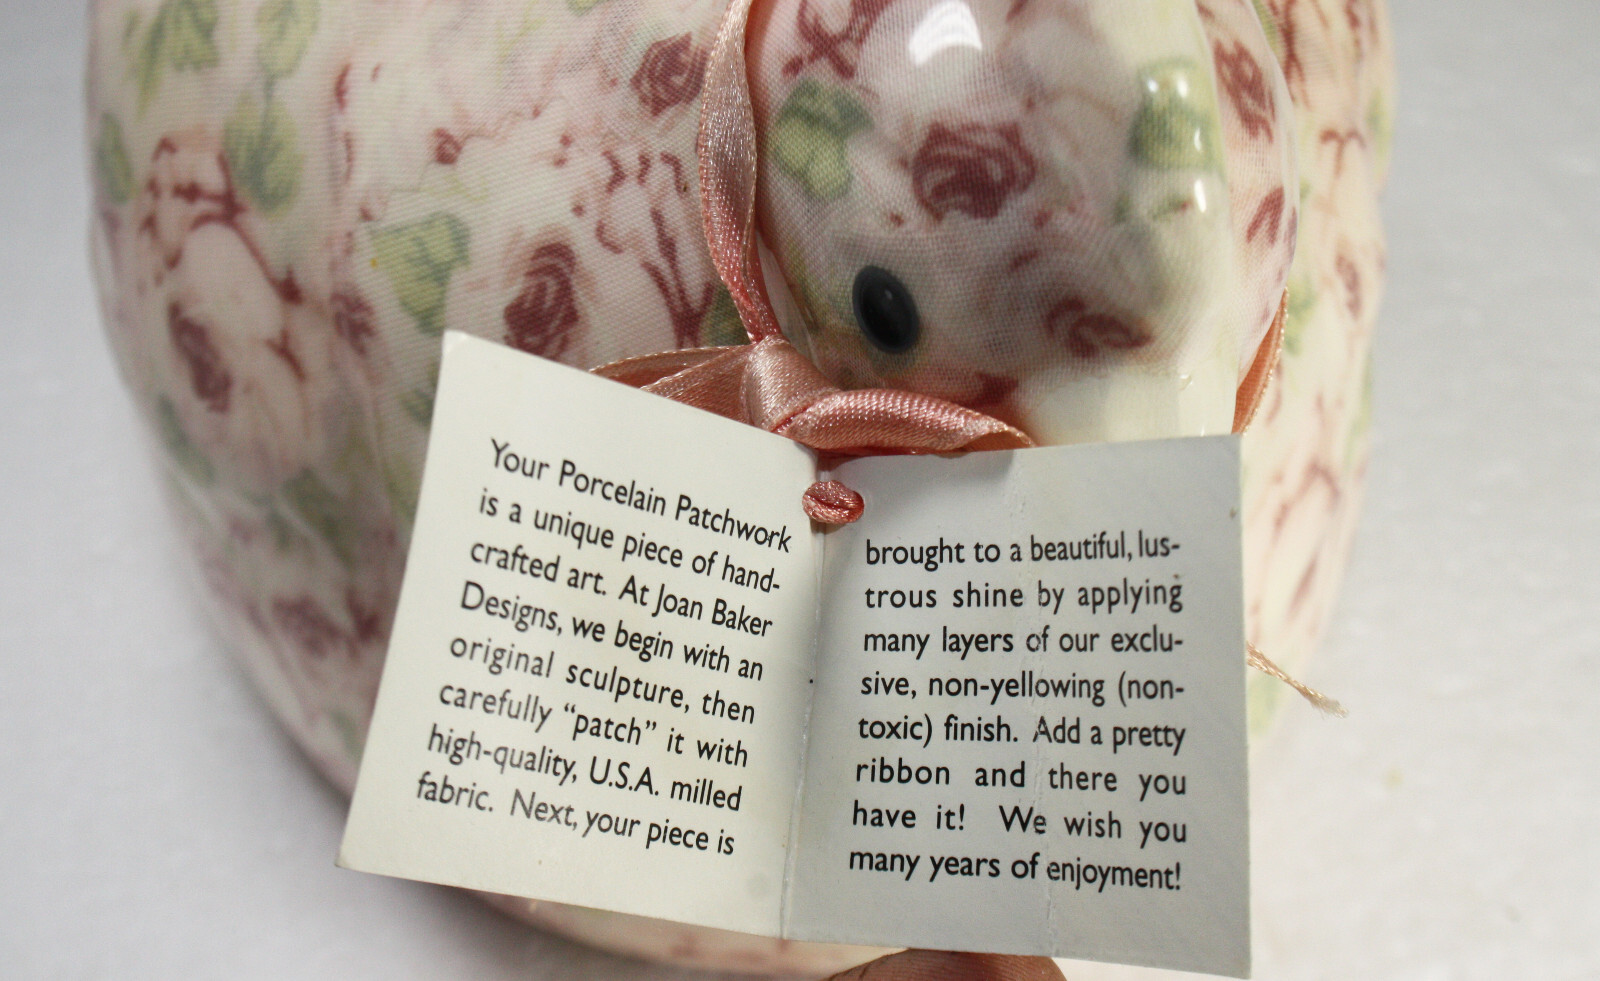 Your Porcelain Patchwork
is a unique piece of hand-
crafted art. At Joan Baker
Designs, we begin with an
original sculpture, then
carefully “patch” it with
high-quality, U.S.A. milled
fabric. Next, your piece is
brought to a beautiful, lus-
trous shine by applying
many layers of our exclu-
sive, non-yellowing (non-
toxic) finish. Add a pretty
ribbon and there you
have it! We wish you
many years of enjoyment!